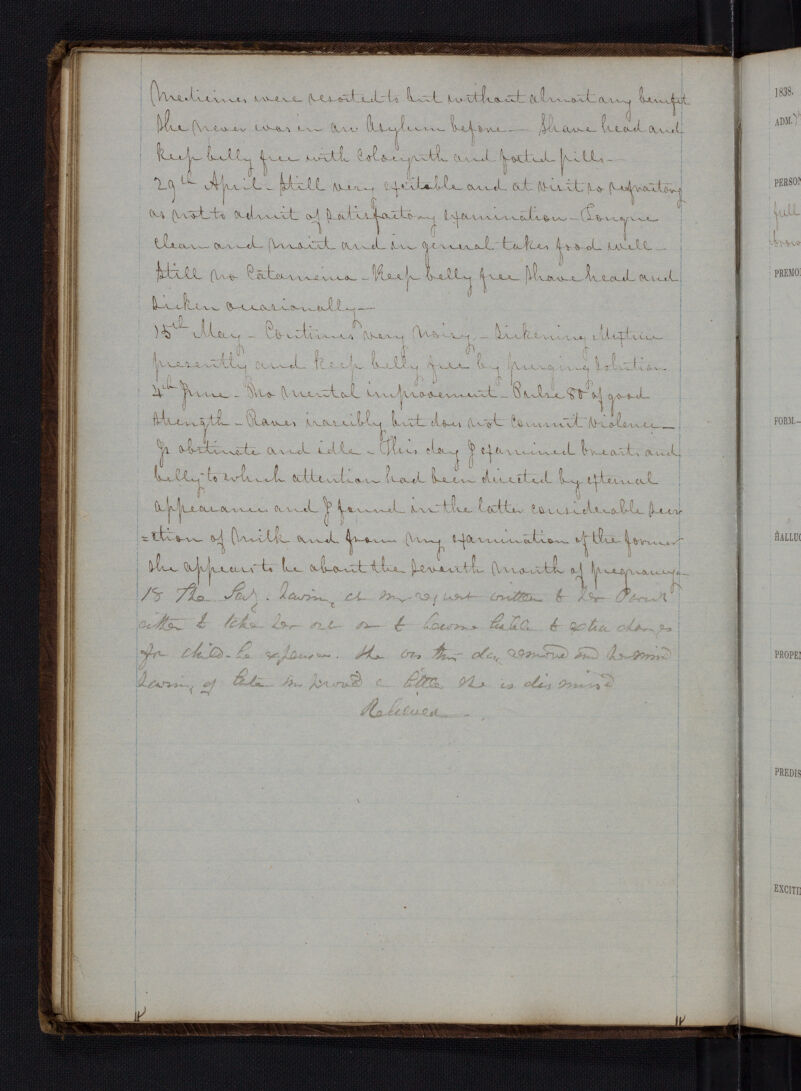 Medicines were resorted to but without almost any benefit
She never was in an Asylum before — Shave head and
keep belly free with Colocynth and foetid pills —
29th April – Still very excitable and at visit so refractory
as not to admit of satisfactory examination – Tongue
clean and moist and in general takes food well –
Still no Catamenia – Keep belly free Shave head and
Sicken occasionally —
15th May – Continues very noisy – Sickening Mixture
presently and keep belly free by purging Solution
4th June – No mental improvement – Pulse 80 of good
Strength – Raves irascibly but does not commit violence –
Is obstinate and idle – This day I examined breasts and
belly to which attention had been directed by external
appearance and I found in the latter considerable secr
=etion of Milk and from my examination of the former
she appears to be about the seventh month of pregnancy –
18 The having at my request written to her
either to take her out or to become liable to extra charges
for child-be expenses. She was this day removed and her mind
having of late improved a little she is dismissed
Relieved
1838.
ADM.
PERSO
full
brow
PREMO
FORM.—
HALLUC
PROPE
PREDIS
EXCITI